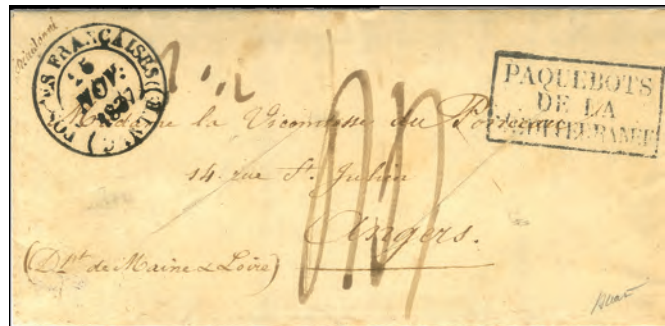 POSTES FRANÇAISES
NOV.
1837
PAQUEBOTS
DE LA
MEDITERRANEE
Madame la Vicomtesse du
14. rue St. Julien
Angers.
(Dpt. de Maine & Loire)